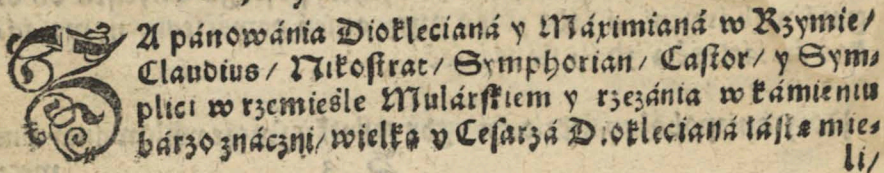 ZA pánowánia Dioklecianá y Máximianá w Rzymie/
Claudius/ Nikostrat/ Symphorian/ Castor/ y Sym⸗
plici w rzemieśle Mulárskiem y rzezánia w kámieniu
bárzo znáczni/ wielką v Cesarzá Dioklecianá łáskę mie⸗
li/